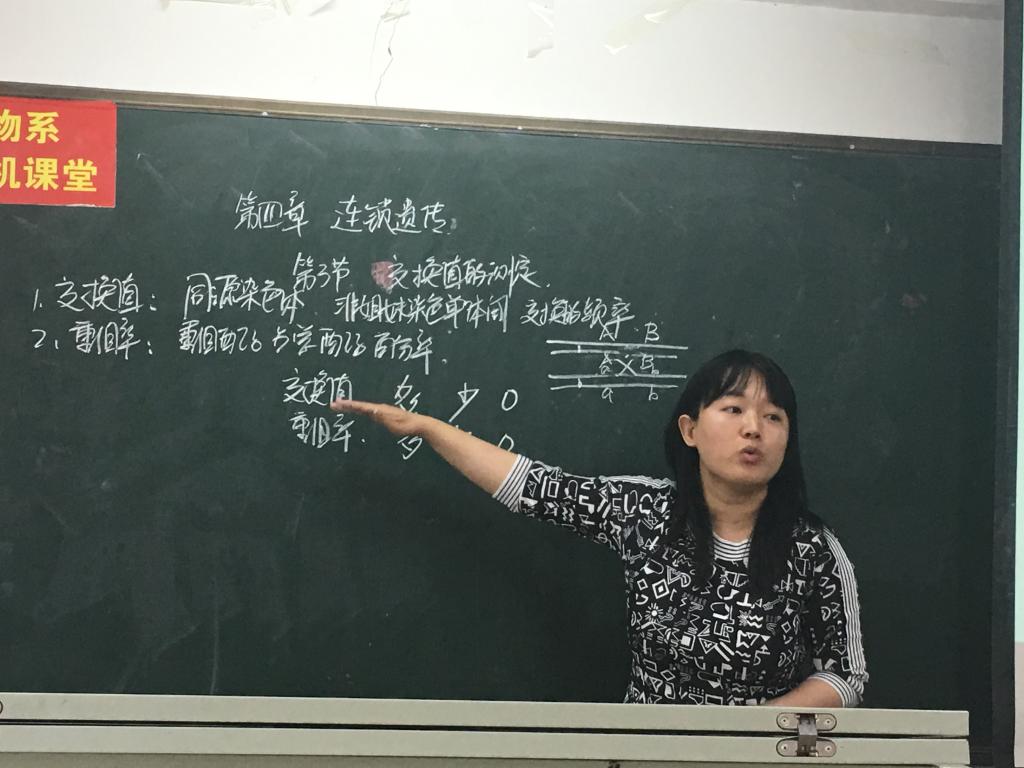 物系
机课堂
第四章 连锁遗传
第3节 交换值的测定.
1. 交换值: 同源染色体 非姐妹染色单体间 交换的频率
2. 重组率: 重组配子占总配子百分率.
A B
a b
交换值 多 少 0
重组率. 多 0